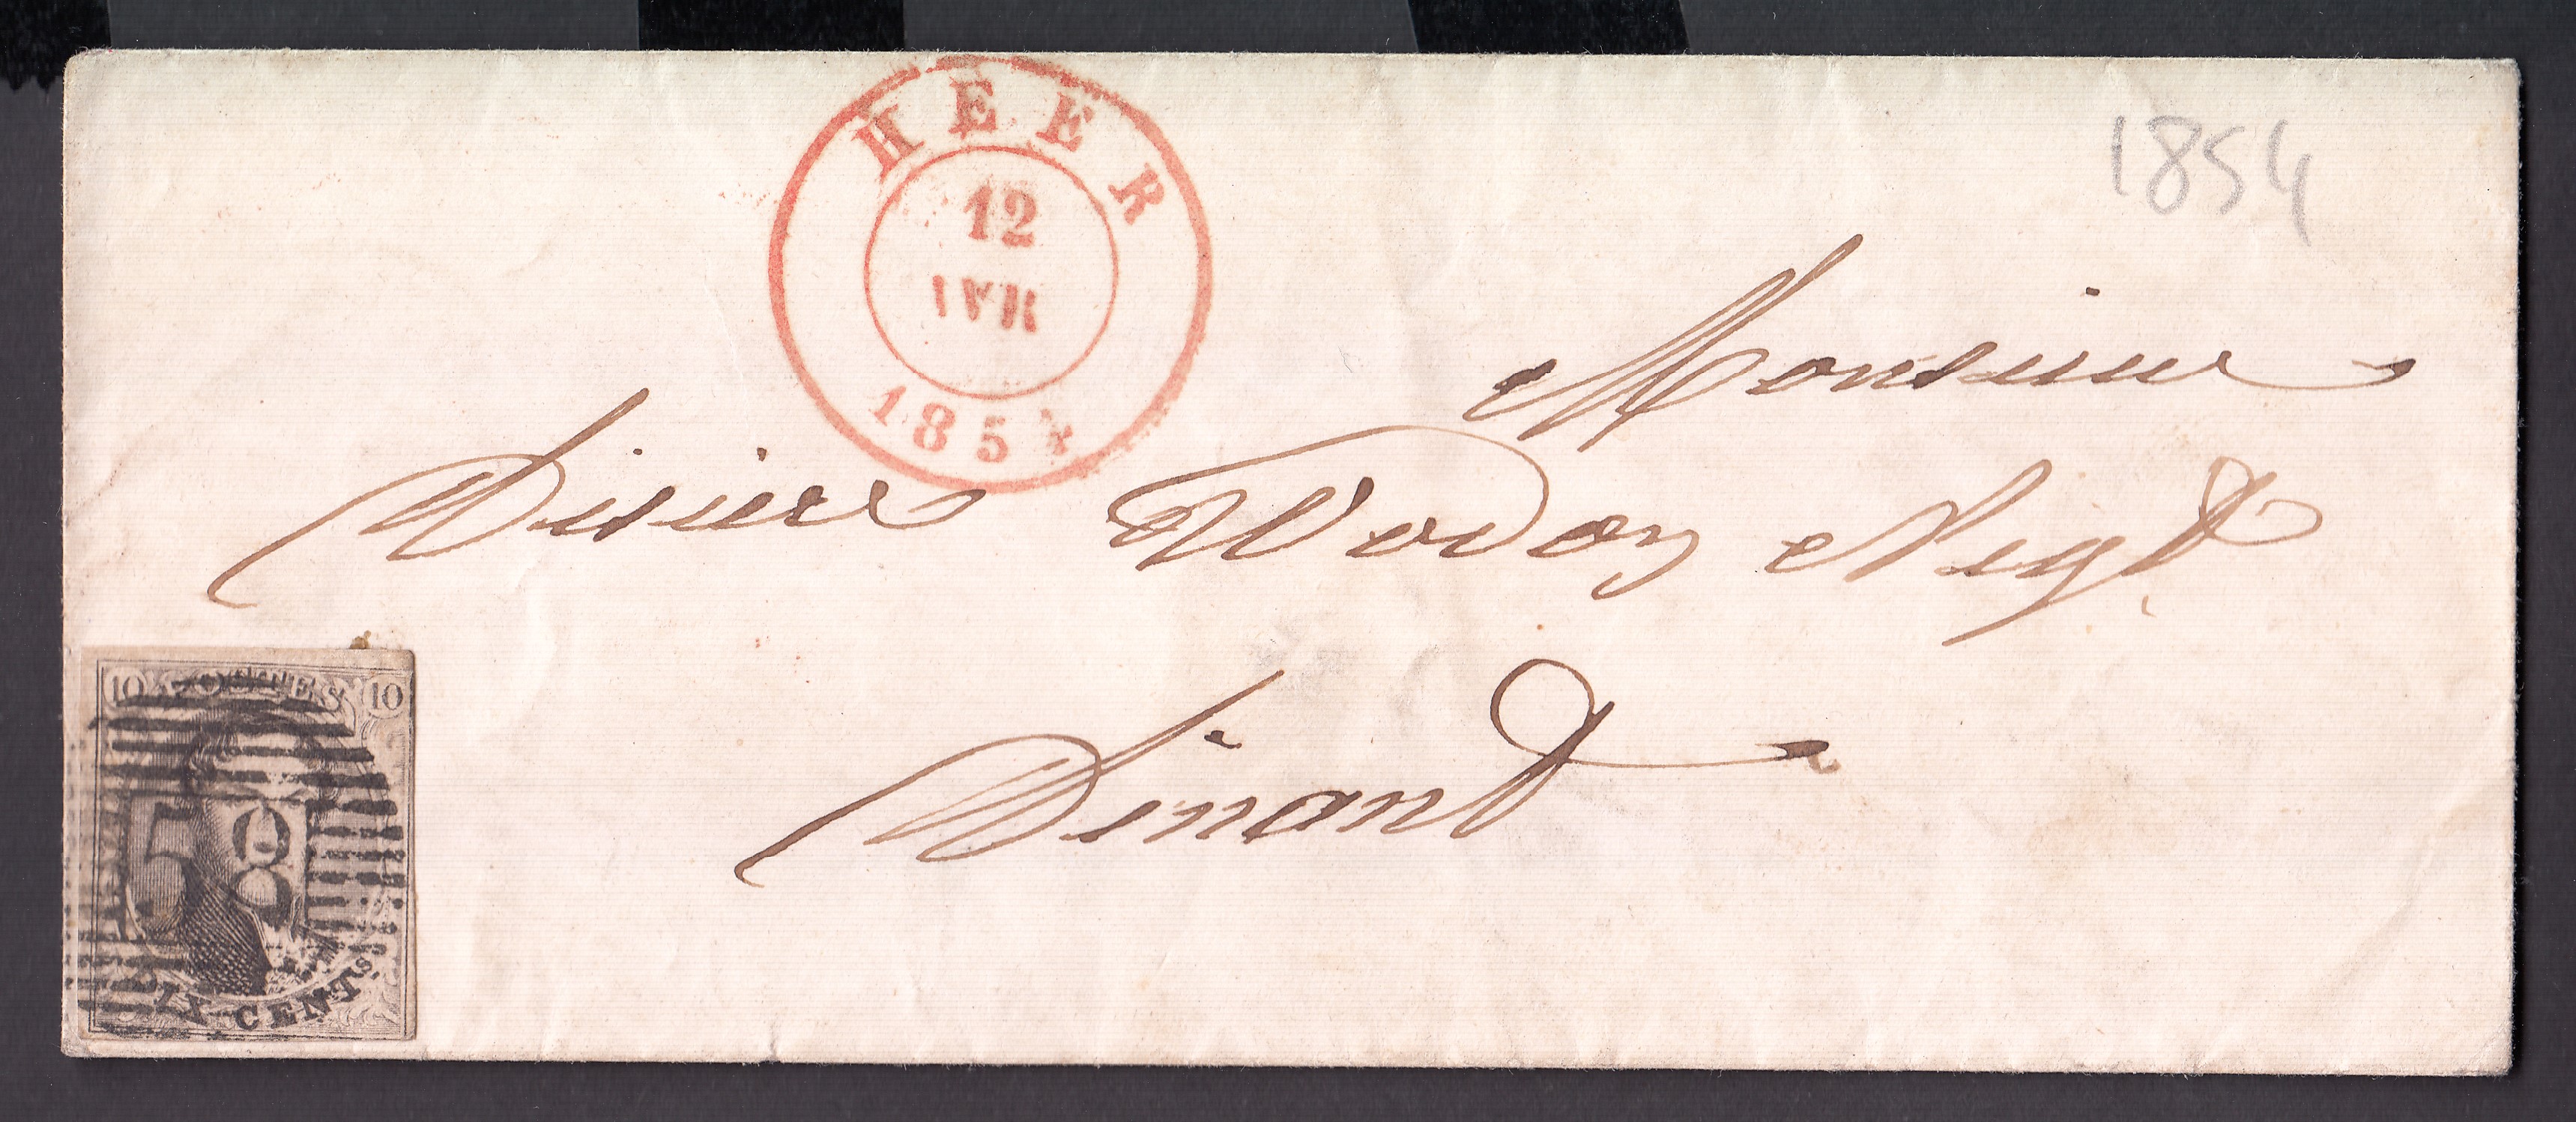 HEER
12
AVR
1854
1854
Monsieur
Désirée Wodon Negt.
Dinant
10 POSTES 10
DIX CENTS.